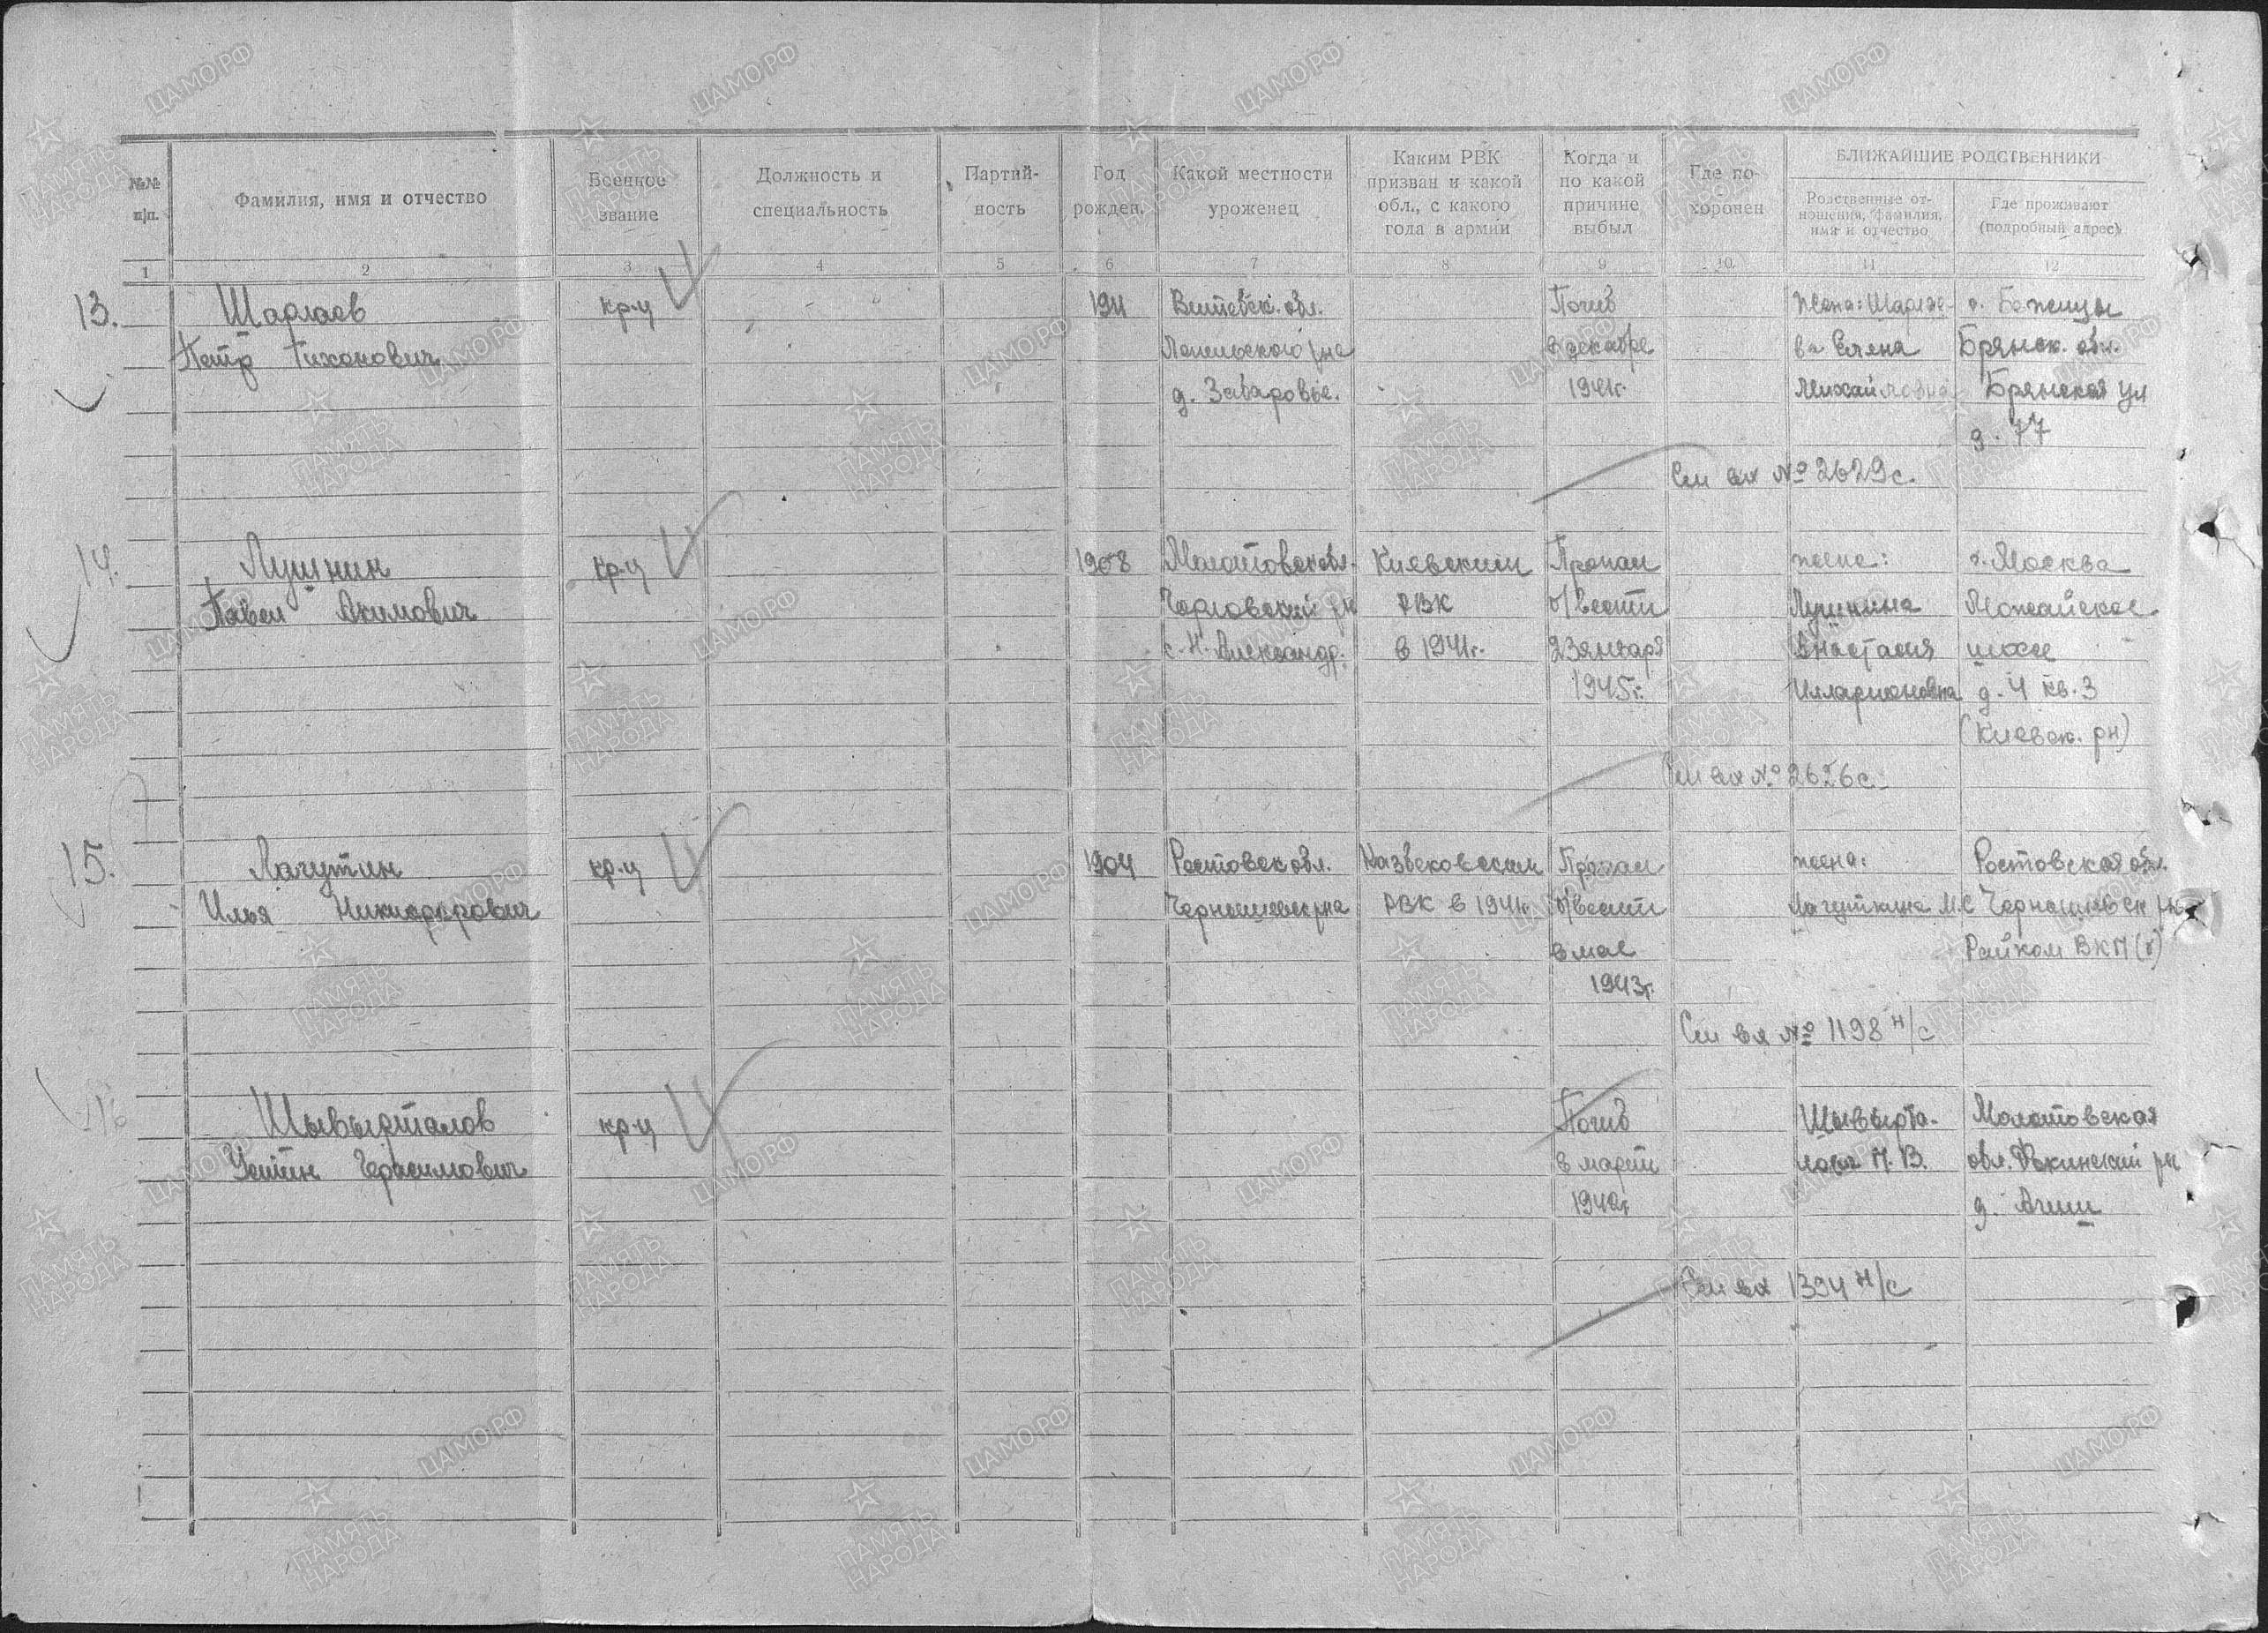 №№ п/п.
Фамилия, имя и отчество
Военное звание
Должность и специальность
Партий-ность
Год рожден.
Какой местности уроженец
Каким РВК призван и какой обл., с какого года в армии
Когда и по какой причине выбыл
Где по-хоронен
БЛИЖАЙШИЕ РОДСТВЕННИКИ
Родственные от-ношения, фамилия, имя и отчество
Где проживают (подробный адрес)
1 2 3 4 5 6 7 8 9 10 11 12
13. Шарлаев кр-ц 1911 Витебск. обл. Погиб жена: Шарлае-
Петр Тихонович Лепельского р-на в декабре ва Елена Брянск. обл.
д. Заборовье. 1941г. Михайловна Брянская ул
д. 77
См вх № 2629с.
14. Лушнин кр-ц 1908 Молотовск обл. Киевским Пропал жена: г. Москва
Павел Акимович РВК б/вести Лушнина Можайское
с. Н. Александр. в 1941г. 23 января Анастасия шоссе
1945г. Илларионовна д. 4 кв. 3
(Киевск. рн)
См вх № 2626с.
15. Лагутин кр-ц 1904 Ростовск обл. Пропал жена: Ростовская обл.
Илья Никифорович РВК в 1941г б/вести М.С
в мае Райком ВКП(б)
1943г.
См вх № 1198 н/с
16 Шывырталов кр-ц Погиб Шывырта-Молотовская
Устин Герасимович в марте лова обл. рн
1942г д.
См вх 1394 н/с